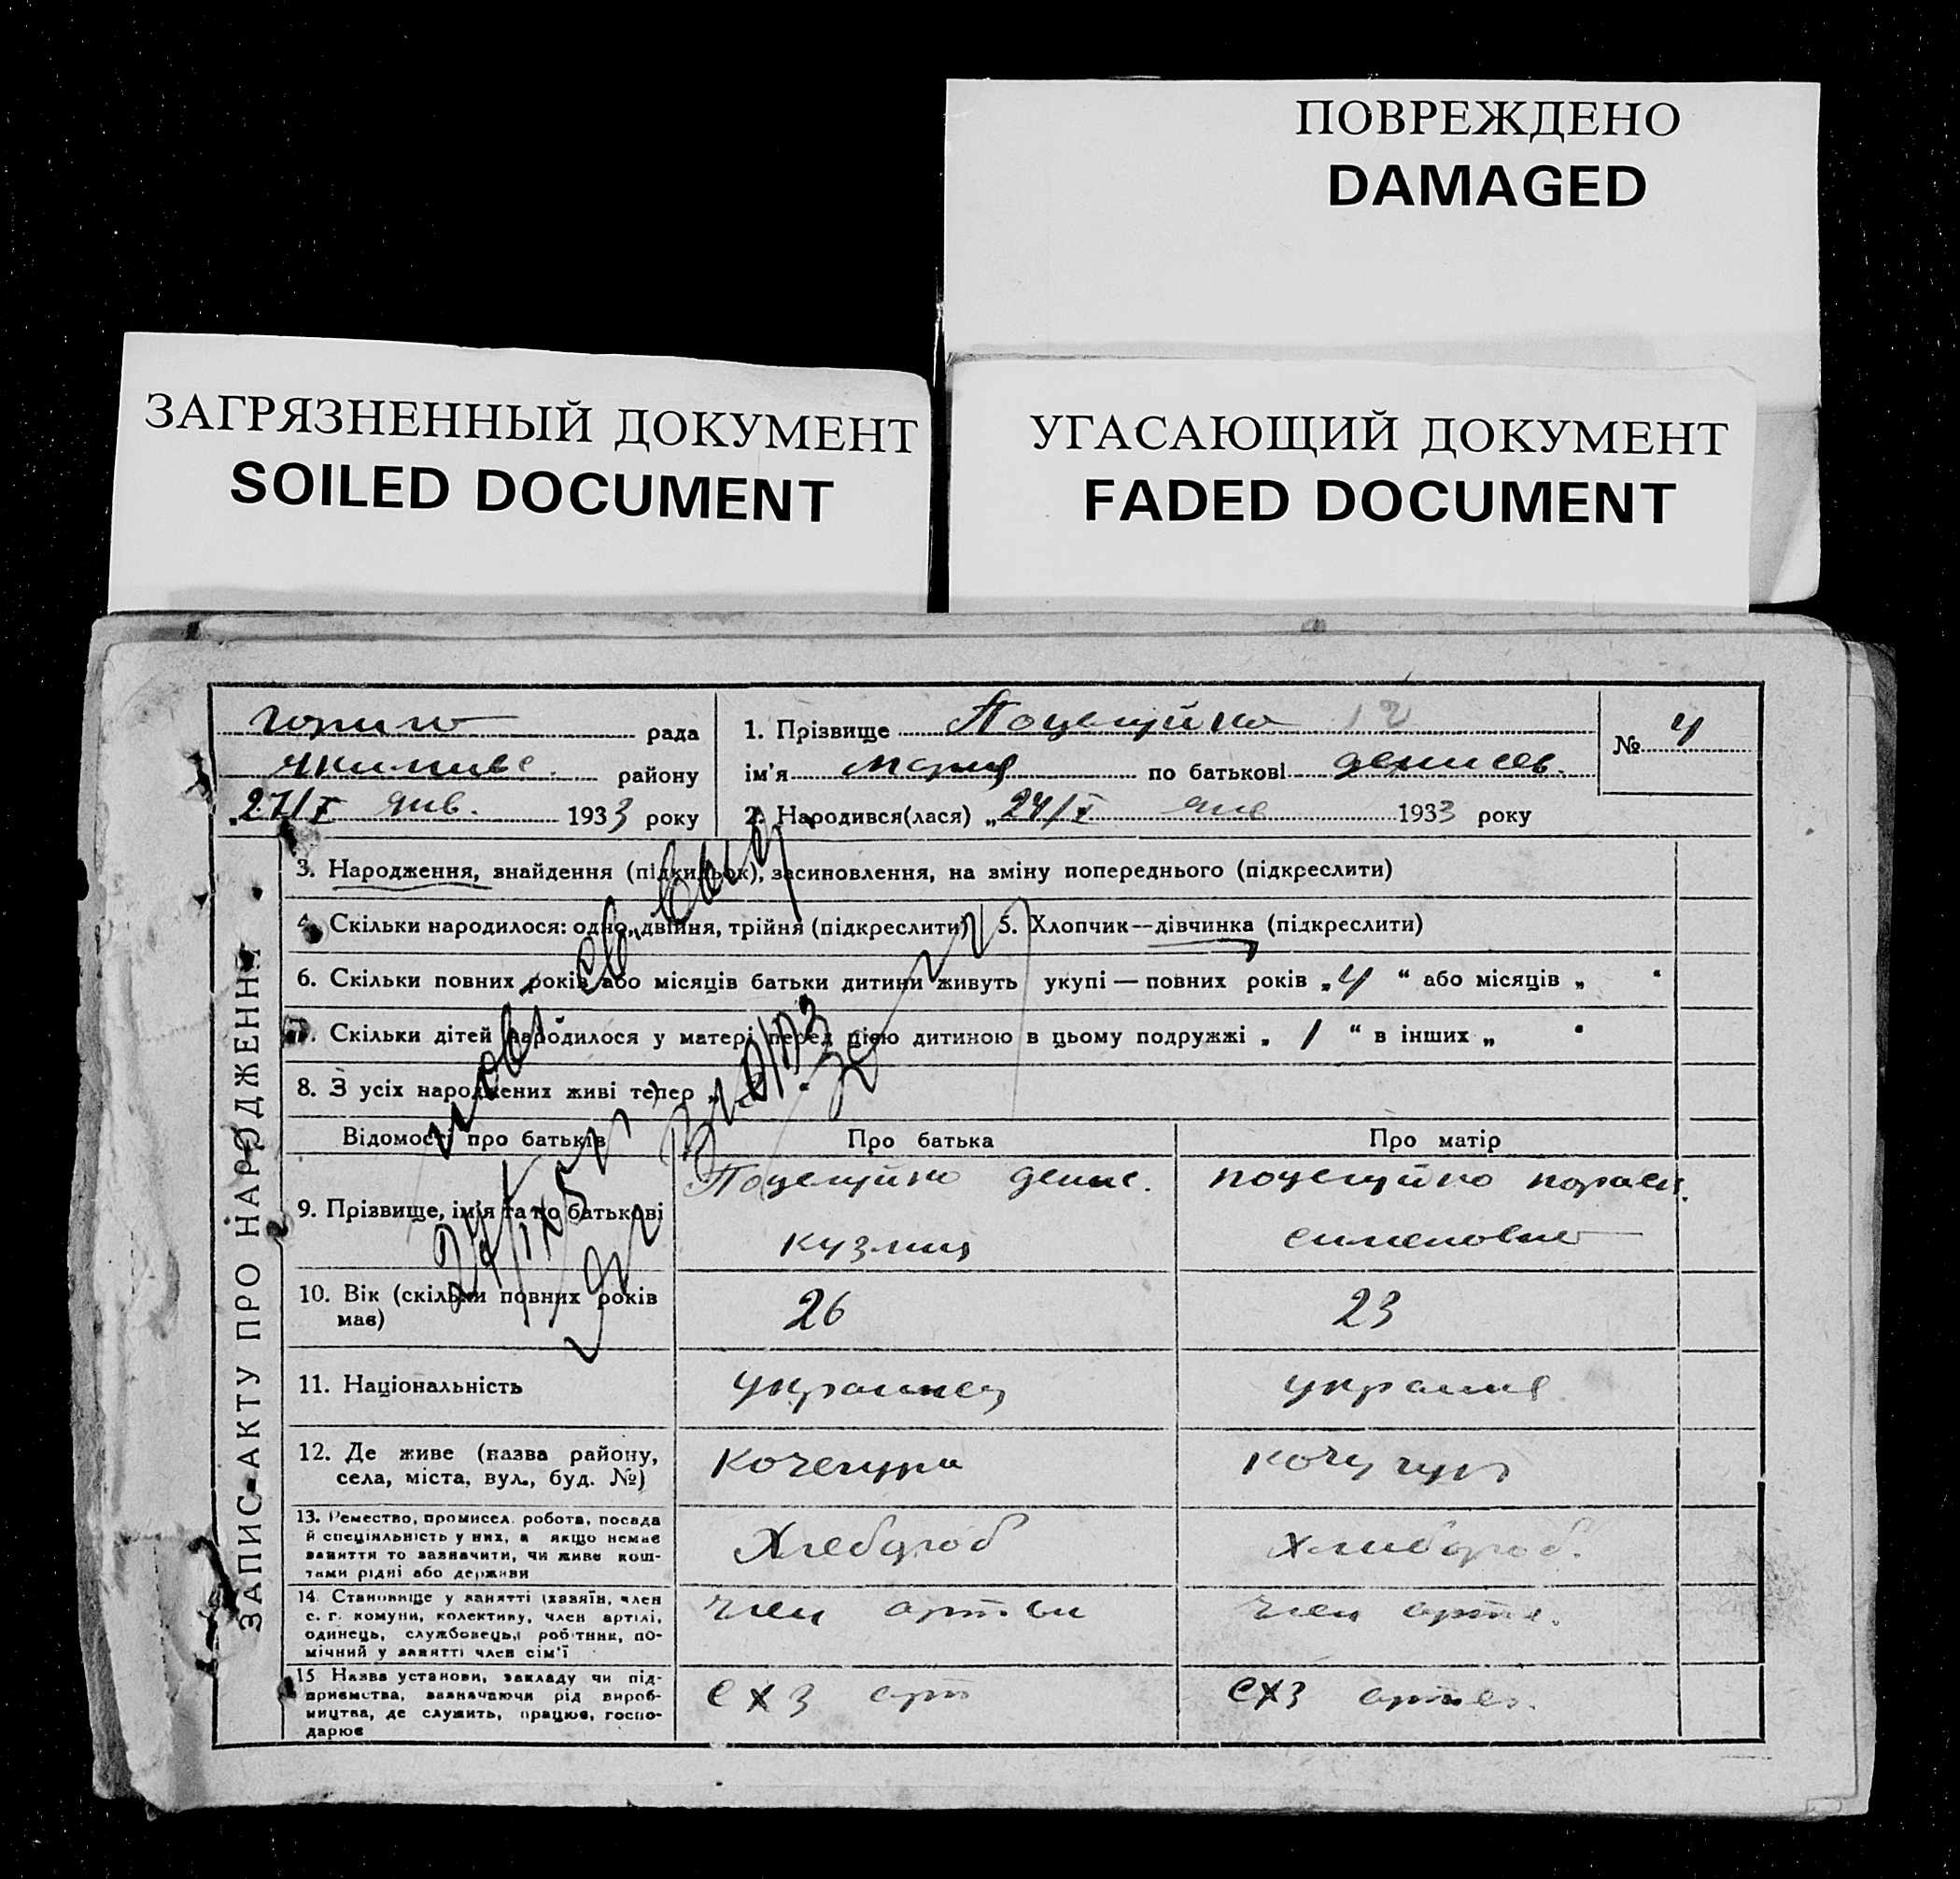 ПОВРЕЖДЕНО
DAMAGED
ЗАГРЯЗНЕННЫЙ ДОКУМЕНТ
SOILED DOCUMENT
УГАСАЮЩИЙ ДОКУМЕНТ
FADED DOCUMENT
рада
району
„27/I янв. 1933 року
1. Прізвище Поцелуйко
ім'я Мария по батькові денисов.
2. Народився(лася) „24/I янв 1933 року
№ 4
ЗАПИС АКТУ ПРО НАРОДЖЕННЯ
3. Народження, знайдення (підкидьок), засиновлення, на зміну попереднього (підкреслити)
4. Скільки народилося: одно, двійня, трійня (підкреслити) 5. Хлопчик—дівчинка (підкреслити)
6. Скільки повних років або місяців батьки дитини живуть укупі — повних років „4“ або місяців „
7. Скільки дітей народилося у матері перед цією дитиною в цьому подружжі „ 1 “ в інших „
8. З усіх народжених живі тепер „
Відомості про батьків Про батька Про матір
9. Прізвище, ім'я та по батькові
Поцелуйко денис. поцелуйко
кузмич семеновна
10. Вік (скільки повних років
має)
26 23
11. Національність украинец украине
12. Де живе (назва району,
села, міста, вул., буд. №)
Кочегури
13. Ремество, промисел, робота, посада
й спеціяльність у них, а якщо немає
заняття то зазначити, чи живе кош-
тами рідні або держави
Хлебороб хлибороб.
14. Становище у занятті (хазяїн, член
с. г. комуни, колективу, член артілі,
одинець, службовець, робітник, по-
мічний у занятті член сім'ї
член артели член арте.
15 Назва установи, закладу чи під-
приємства, зазначаючи рід вироб-
ництва, де служить, працює, госпо-
дарює
схз арт схз артел.